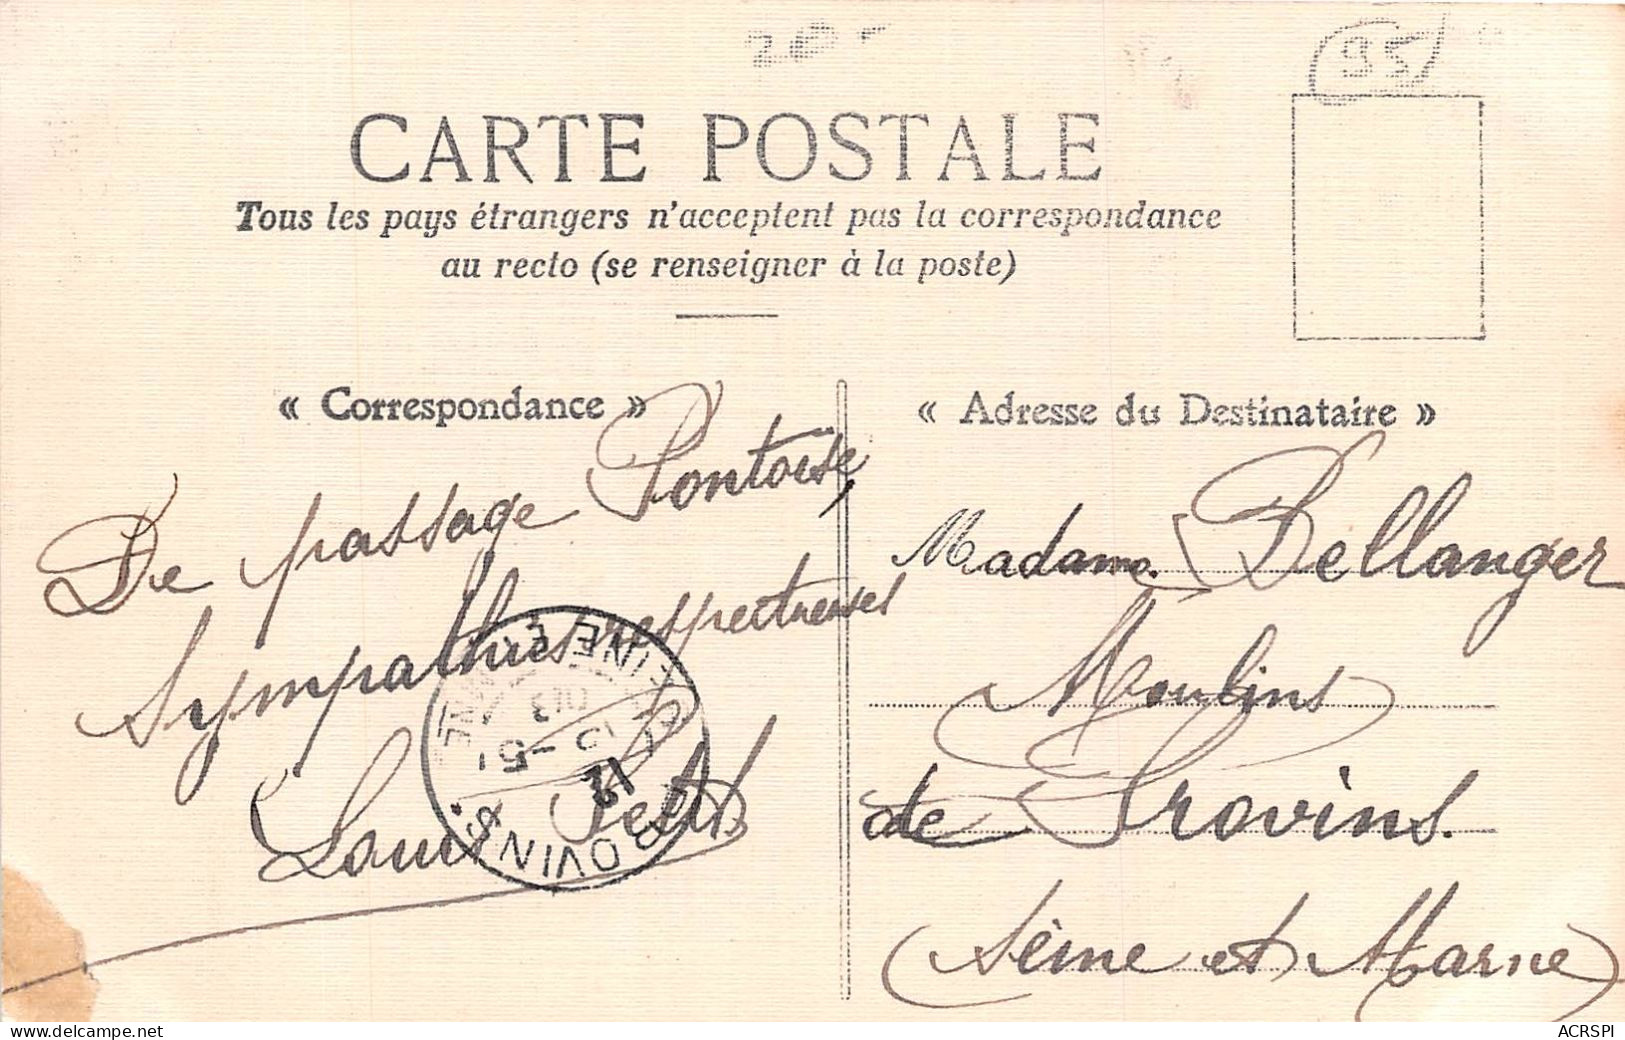 20
95
CARTE POSTALE
Tous les pays étrangers n'acceptent pas la correspondance
au recto (se renseigner à la poste)
« Correspondance »
De passage Pontoise,
Sympathies respectueuses
Louis Petit
PROVINS
SEINE ET
« Adresse du Destinataire »
Madame Bellanger
Moulins
de Provins.
(Seine et Marne)
delcampe.net
ACRSPI